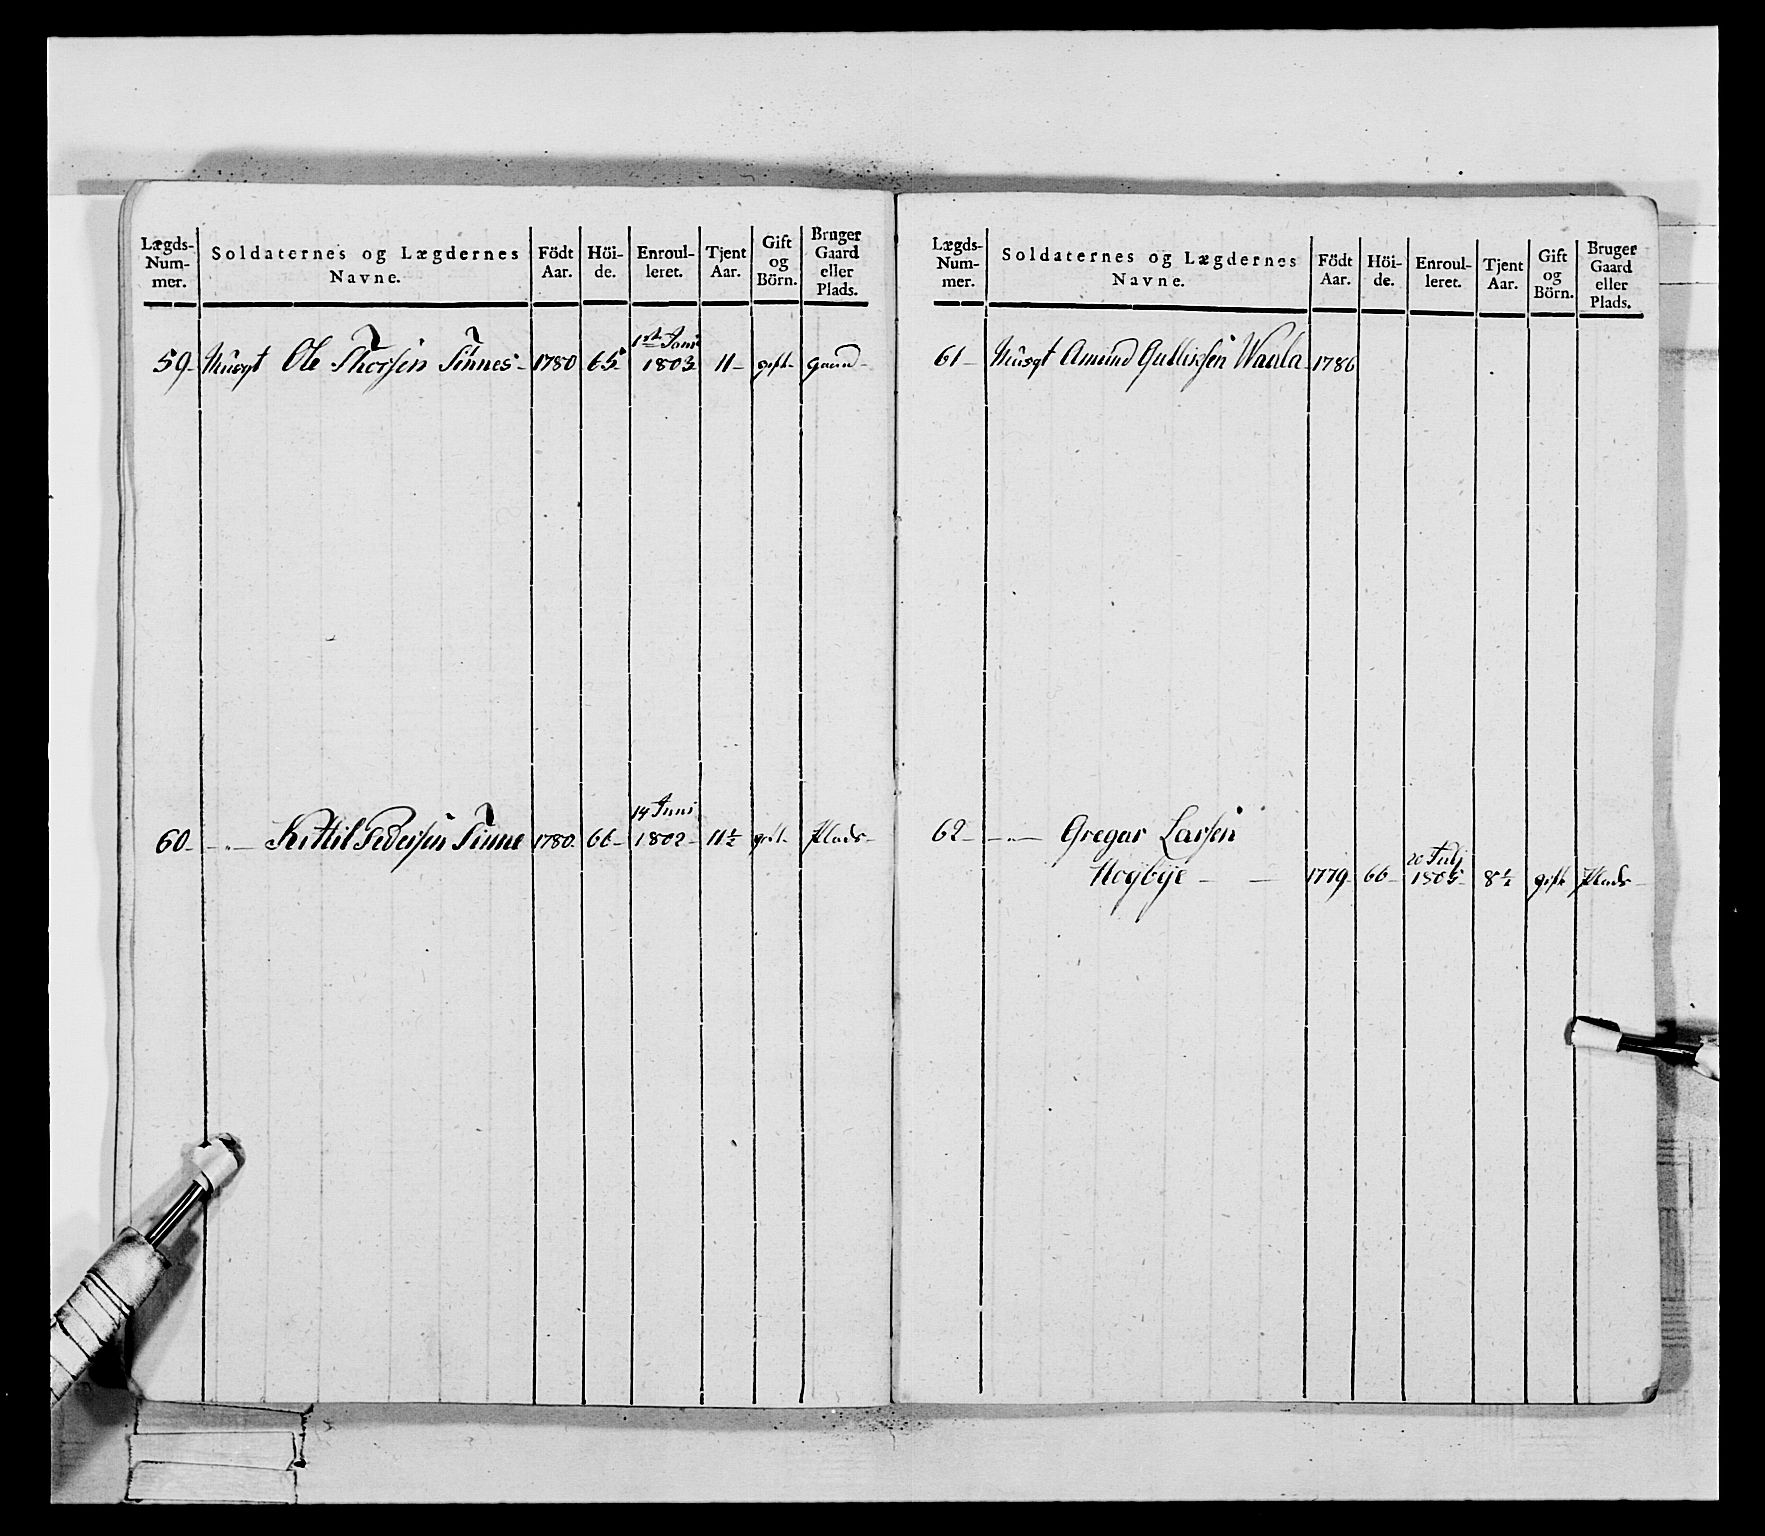 Lægds-
Num-
mer.
Soldaternes og Lægdernes
Navne.
Födt
Aar.
Höi-
de.
Enroul-
leret.
Tjent
Aar.
Gift
og
Börn.
Bruger
Gaard
eller
Plads.
1803
59 - Musqt Ole Thorsen Tinnes - 1780 65 11 - gift - gaard -
14 Juni
60 - - " - Kittil Pedersen Tinne 1780 66 - 1802 - 11½ gift - Plads -
Lægds-
Num-
mer.
Soldaternes og Lægdernes
Navne.
Födt
Aar.
Höi-
de.
Enroul-
leret.
Tjent
Aar.
Gift
og
Börn.
Bruger
Gaard
eller
Plads.
61 - Musqt Amund Gullixsen Waala 1786
62 - - " - Gregar Larsen
20 Julj
Høybye - - 1779 66 - 1805 - 8½ gift Plads -